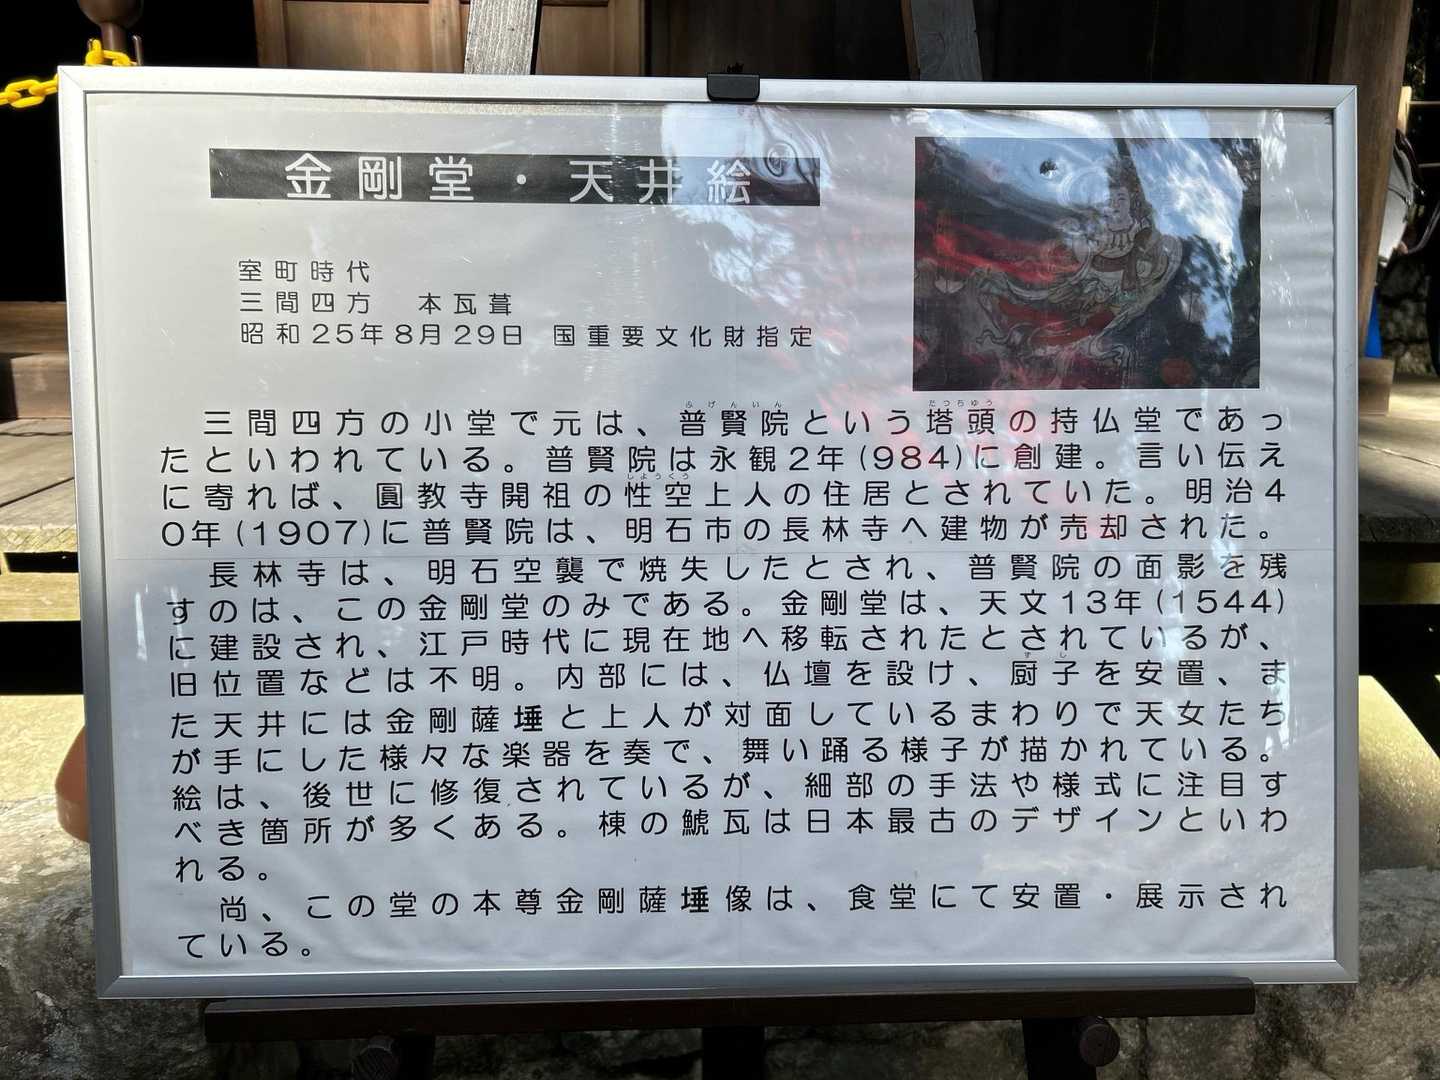 金剛堂・天井絵
室町時代
三間四方　本瓦葺
昭和25年8月29日　国重要文化財指定
三間四方の小堂で元は、普賢院という塔頭の持仏堂であっ
たといわれている。普賢院は永観2年(984)に創建。言い伝え
に寄れば、圓教寺開祖の性空上人の住居とされていた。明治4
0年(1907)に普賢院は、明石市の長林寺へ建物が売却された。
長林寺は、明石空襲で焼失したとされ、普賢院の面影を残
すのは、この金剛堂のみである。金剛堂は、天文13年(1544)
に建設され、江戸時代に現在地へ移転されたとされているが、
旧位置などは不明。内部には、仏壇を設け、厨子を安置、ま
た天井には金剛薩埵と上人が対面しているまわりで天女たち
が手にした様々な楽器を奏で、舞い踊る様子が描かれている。
絵は、後世に修復されているが、細部の手法や様式に注目す
べき箇所が多くある。棟の鯱瓦は日本最古のデザインといわ
れる。
尚、この堂の本尊金剛薩埵像は、食堂にて安置・展示され
ている。